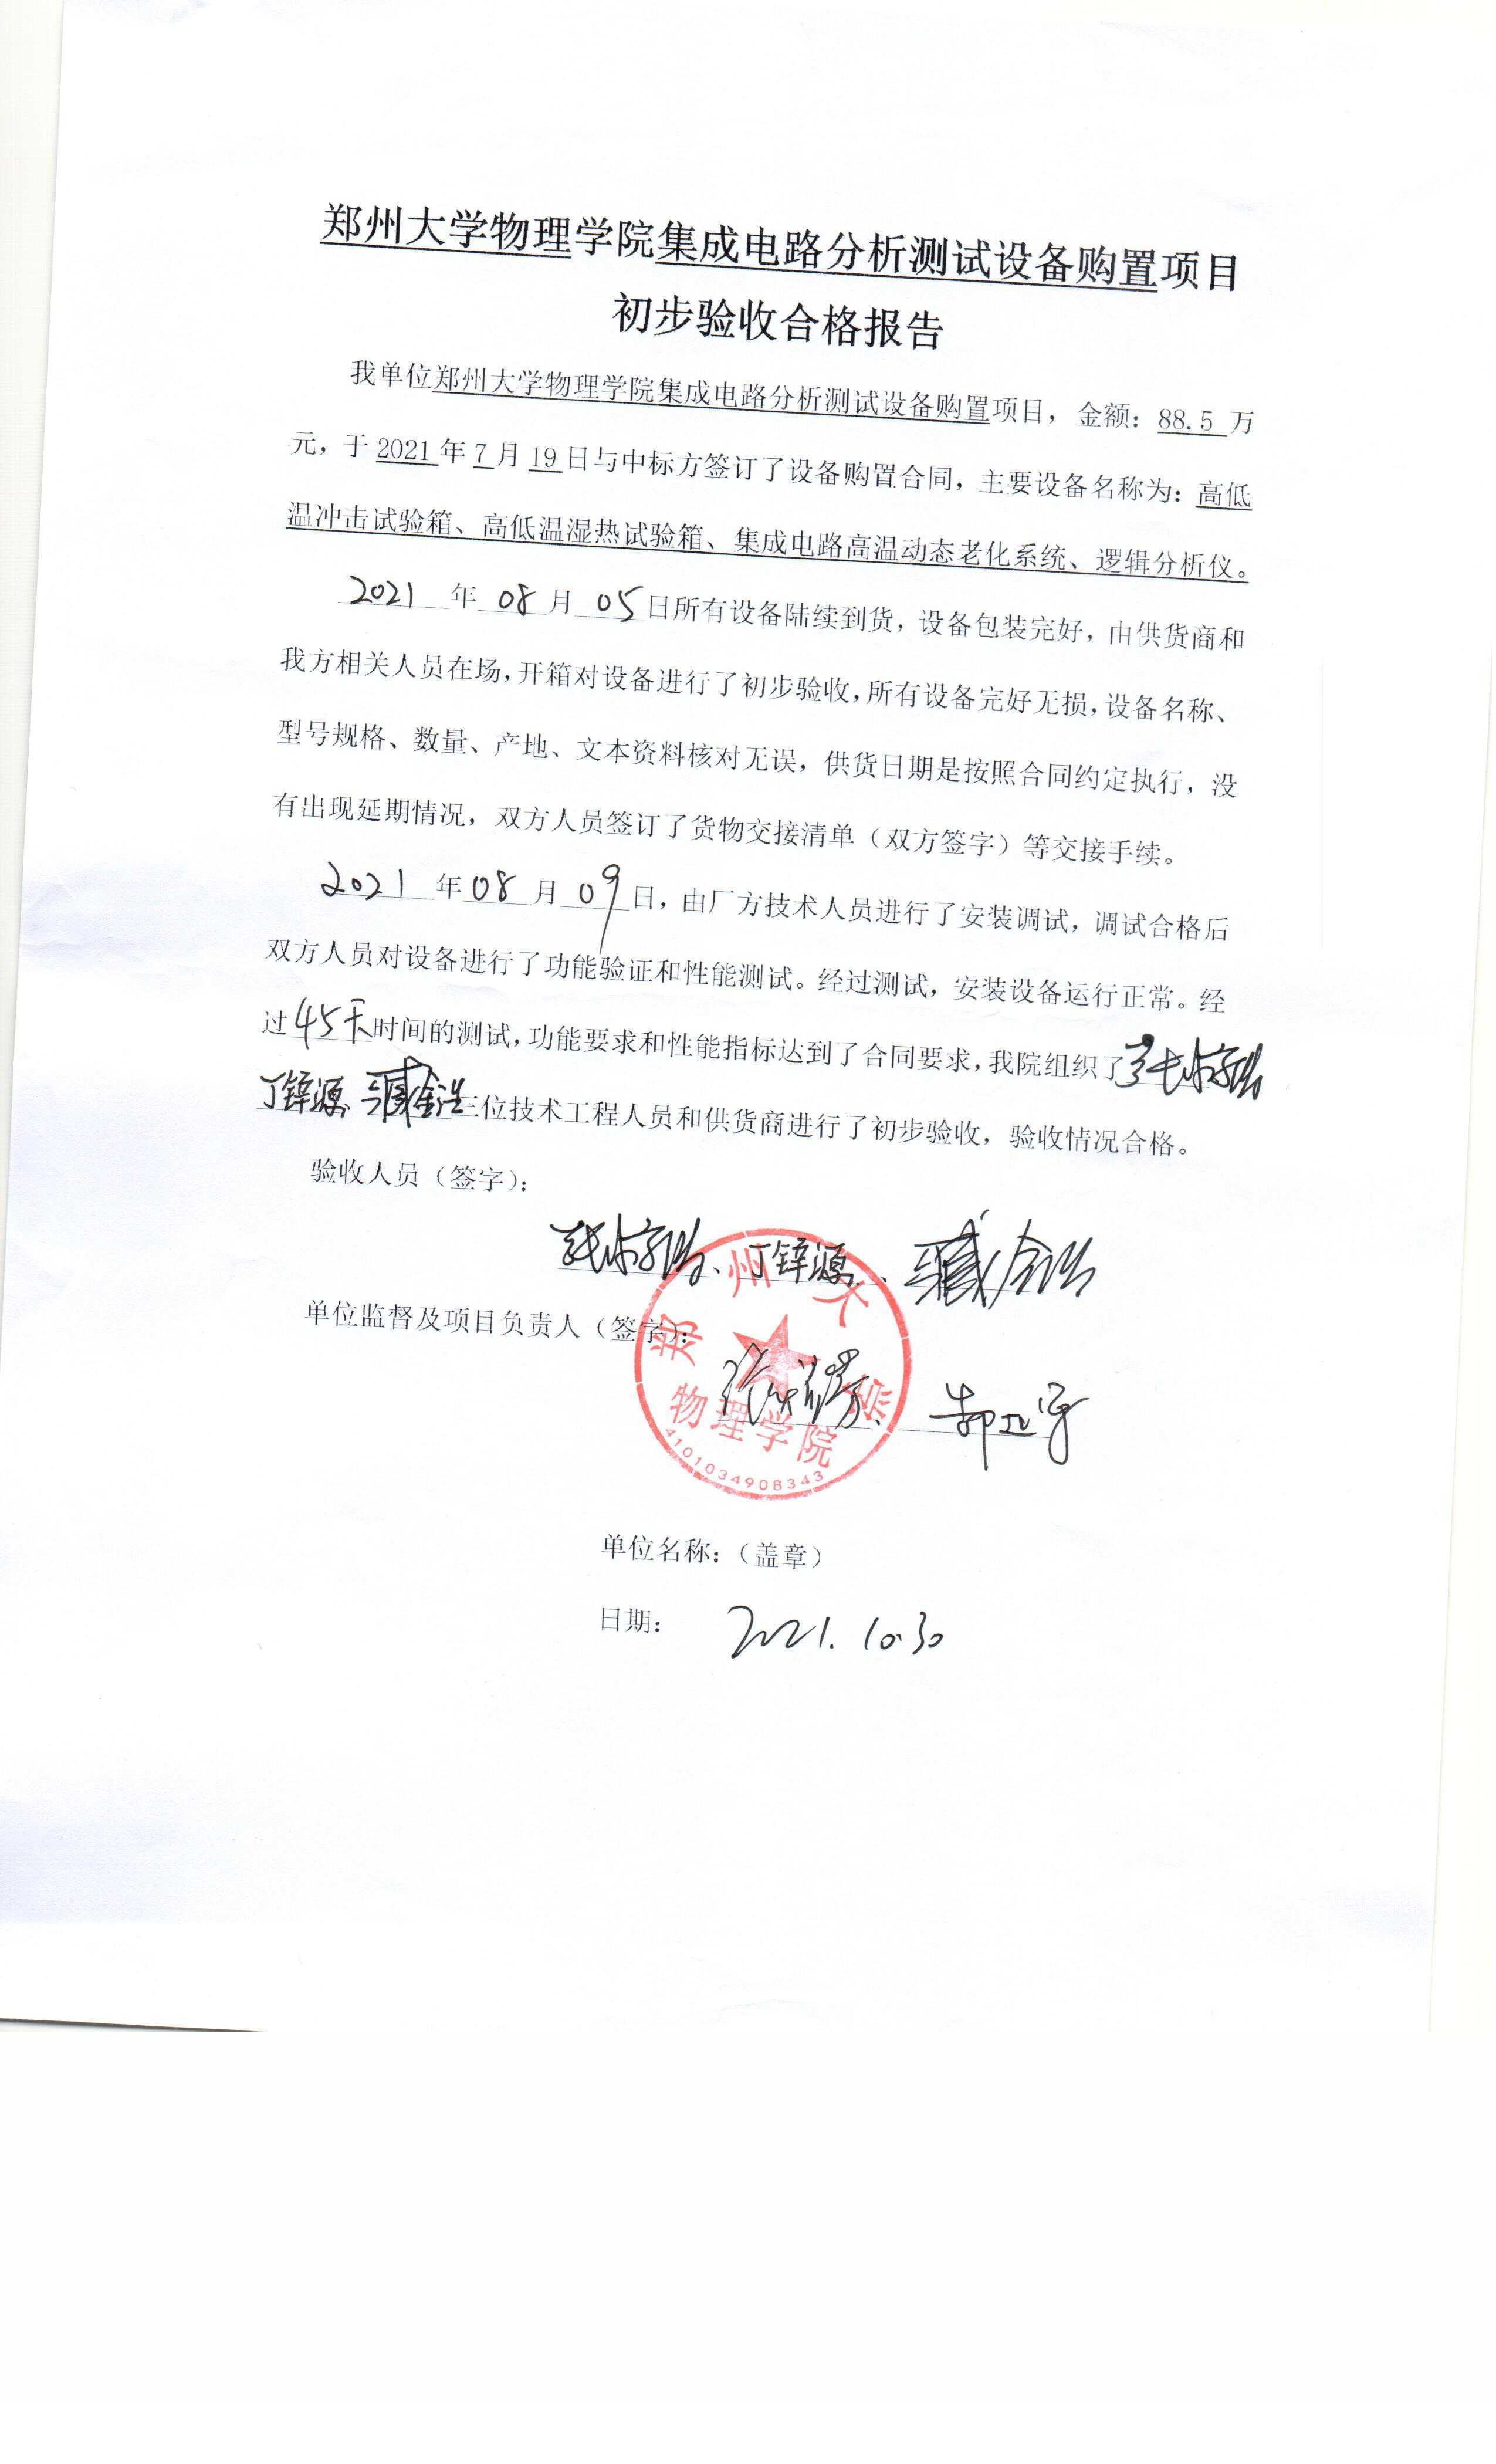 郑州大学物理学院集成电路分析测试设备购置项目
初步验收合格报告
我单位郑州大学物理学院集成电路分析测试设备购置项目，金额：88.5 万
元，于 2021 年 7 月 19 日与中标方签订了设备购置合同，主要设备名称为：高低
温冲击试验箱、高低温湿热试验箱、集成电路高温动态老化系统、逻辑分析仪。
2021 年 08 月 05 日所有设备陆续到货，设备包装完好，由供货商和
我方相关人员在场，开箱对设备进行了初步验收，所有设备完好无损，设备名称、
型号规格、数量、产地、文本资料核对无误，供货日期是按照合同约定执行，没
有出现延期情况，双方人员签订了货物交接清单（双方签字）等交接手续。
2021 年 08 月 09 日，由厂方技术人员进行了安装调试，调试合格后
双方人员对设备进行了功能验证和性能测试。经过测试，安装设备运行正常。经
过 45天 时间的测试，功能要求和性能指标达到了合同要求，我院组织了
丁锌源、臧金浩三位技术工程人员和供货商进行了初步验收，验收情况合格。
验收人员（签字）：
丁锌源、臧金浩
单位监督及项目负责人（签字）：
郑州大学
物理学院
4101034908343
单位名称：（盖章）
日期： 2021.10.30